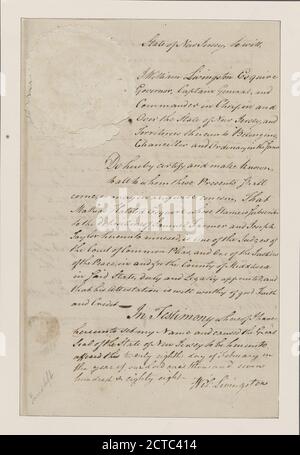 State of New Jersey, to wit,
I William Livingston Esquire
Governor, Captain General, and
Commander in Chief in and
Over the State of New Jersey, and
Territories thereunto Belonging
Chancellor and Ordinary in the same
Do hereby certify and make known
to all to whom these Presents shall
come or may concern, That
Esquire whose Name is subscribed
to the
Taylor hereunto annexed, is one of the Judges of
the Court of Common Pleas, and One of the Justices
of the Peace, in and for the County of Middlesex
in said State, duly and legally appointed; and
that his attestation is well worthy of good Faith
and Credit
In Testimony whereof I have
hereunto set my Name and caused the Great
Seal of the State of New Jersey to be hereunto
affixed this twenty eighth day of February in
the year of our Lord one thousand seven
hundred & eighty eight
Wil. Livingston
alamy
alamy
Image ID: 2CTC414
www.alamy.com